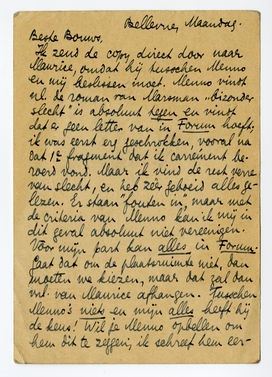 Bellevue, Maandag.
Beste Bouws,
Ik zend de copy direct door naar
Maurice, omdat hij tusschen Menno
en mij beslissen moet. Menno vindt
nl. de roman van Marsman „bizonder
slecht” is absoluut tegen en vindt
dat er geen letter van in Forum hoeft;
ik was eerst erg geschrokken, vooral na
dat 1e fragment dat ik carrément be-
roerd vond. Maar ik vind de rest verre
van slecht, en heb zéér geboeid alles ge-
lezen. Er staan "fouten in", maar met
de criteria van Menno kan ik mij in
dit geval absoluut niet vereenigen.
Voor mijn part kan alles in Forum.
Gaat dat om de plaatsruimte niet, dan
moeten we kiezen, maar dat zal dan
v.nl. van Maurice afhangen. Tusschen
Menno's niets en mijn alles heeft hij
de keus! Wil je Menno opbellen om
hem dit te zeggen; ik schreef hem eer-